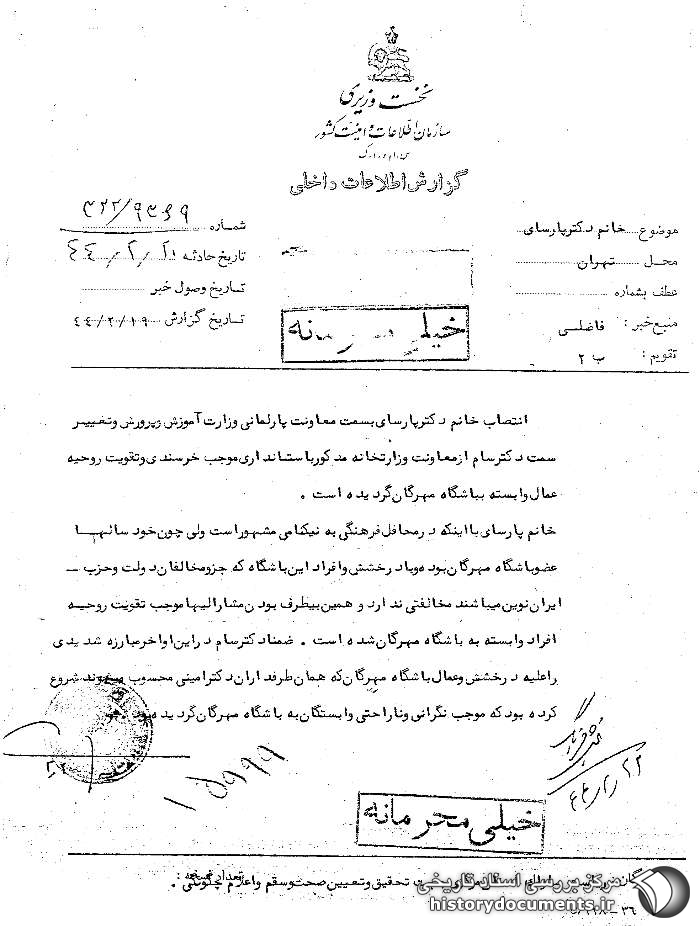 نخست وزیری
سازمان اطلاعات و امنیت کشور
س.ا.و.ا.ک
گزارش اطلاعات داخلی
موضوع خانم دکتر پارسای
محل تهران
عطف بشماره
منبع خبر : فاضلی
تقویم : ب ۲
شماره ۳۲۲/۹۳۶۹
تاریخ حادثه
تاریخ وصول خبر
تاریخ گزارش ۴۴/۲/۱۹
خیلی محرمانه
انتصاب خانم دکتر پارسای بسمت معاونت پارلمانی وزارت آموزش و پرورش و تغییر
سمت دکتر سام از معاونت وزارتخانه مذکور باستانداری موجب خرسندی و تقویت روحیه
عمال وابسته بباشگاه مهرگان گردیده است .
خانم پارسای با اینکه در محافل فرهنگی به نیکنامی مشهور است ولی چون خود سالها
عضو باشگاه مهرگان بوده و با درخشش و افراد این باشگاه که جزو مخالفان دولت و حزب ـ
ایران نوین میباشند مخالفتی ندارد و همین بیطرف بودن مشارالیها موجب تقویت روحیه
افراد وابسته به باشگاه مهرگان شده است . ضمنا دکتر سام در این اواخر مبارزه شدیدی
را علیه درخشش و عمال باشگاه مهرگان که همان طرفداران دکتر امینی محسوب میشوند شروع
کرده بود که موجب نگرانی و ناراحتی وابستگان به باشگاه مهرگان گردیده بود
۱۵۹۹۹
خیلی محرمانه
تعداد نسخه :
تحقیق و تعیین صحت و سقم و اعلام چگونگی .
مرکز بررسی اسناد تاریخی
historydocuments.ir